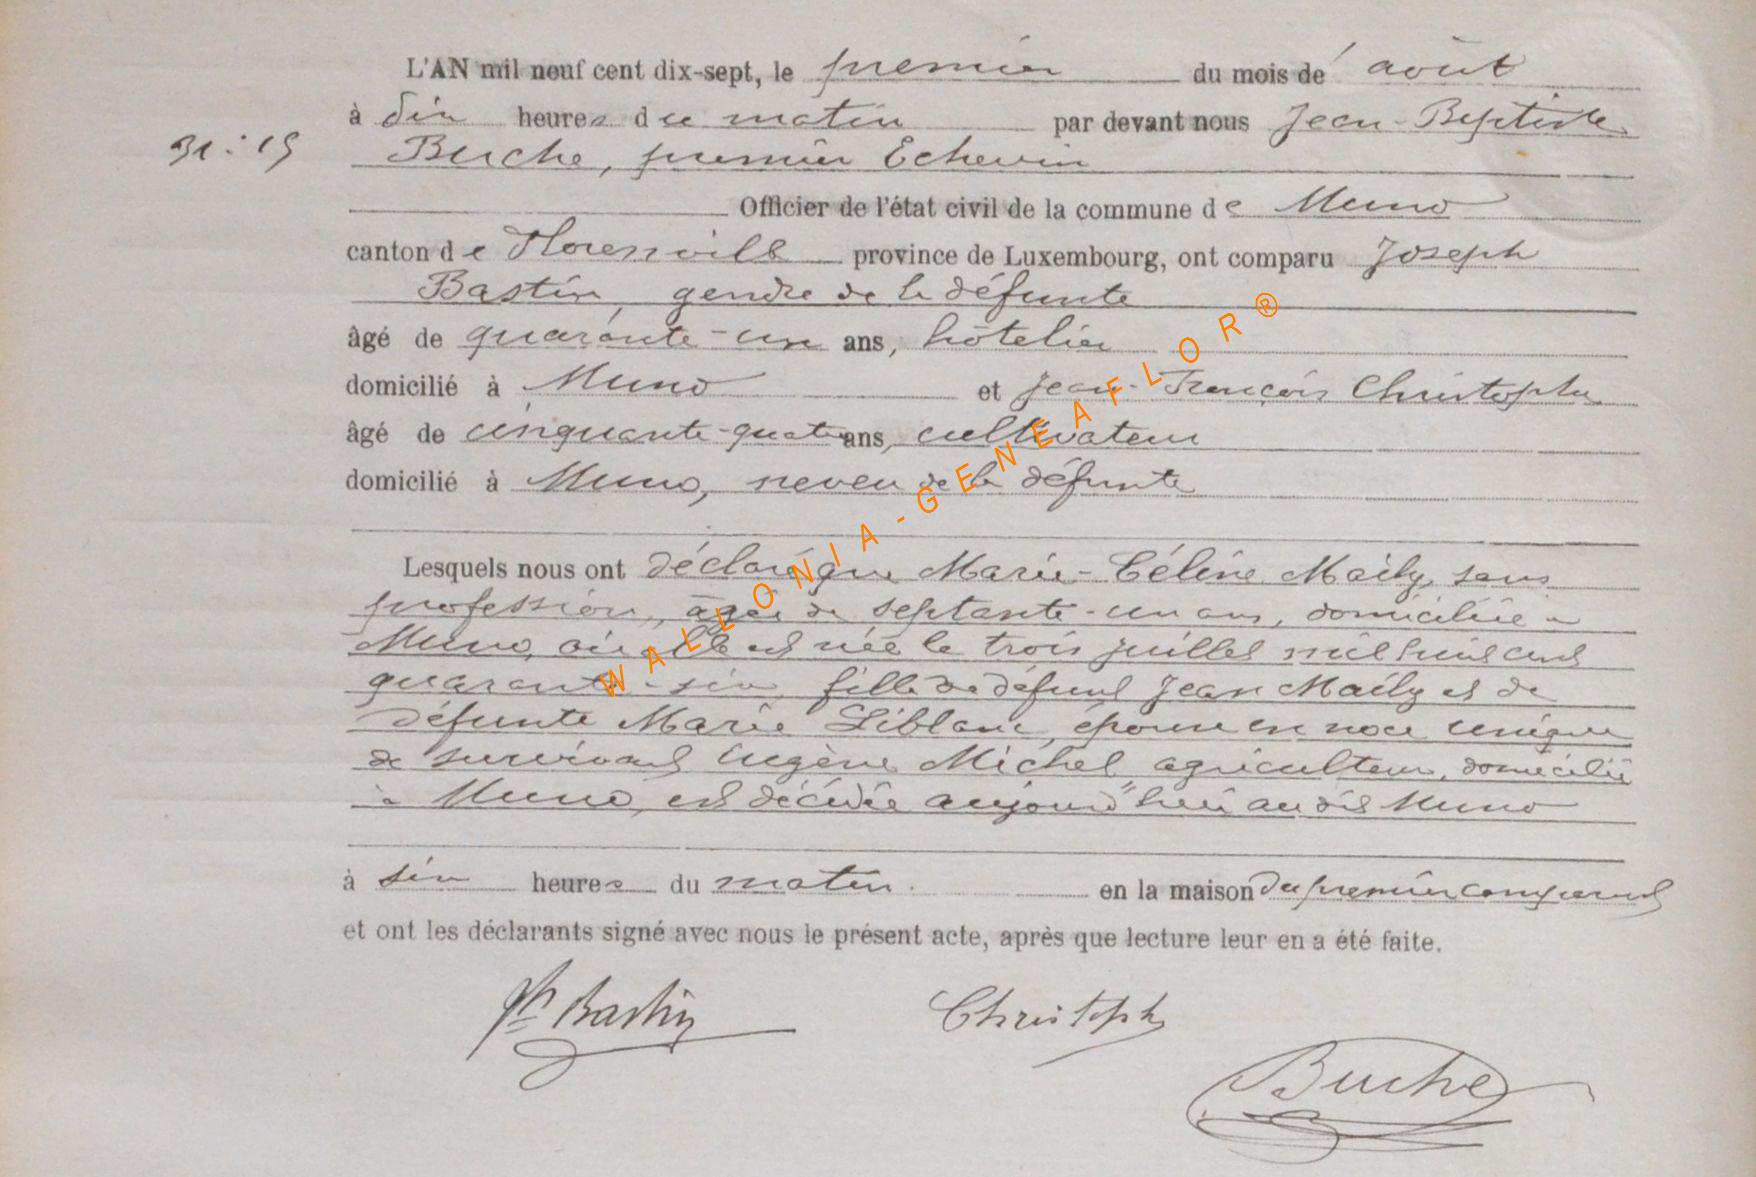 L'AN mil neuf cent dix-sept, le premier du mois de août
à dix heures du matin par devant nous Jean-Baptiste
31:19
Buche, premier Echevin
Officier de l'état civil de la commune de Muno
canton de Florenville province de Luxembourg, ont comparu Joseph
Bastin, gendre de la défunte
âgé de quarante-un ans, hôtelier
domicilié à Muno et Jean-François Christophe
âgé de cinquante-quatre ans, cultivateur
domicilié à Muno, neveu de la défunte
Lesquels nous ont déclaré que Marie-Céline Maily, sans
profession, âgée de septante-un ans, domiciliée à
Muno, où elle est née le trois juillet mil huit cent
quarante-six, fille de défunt Jean Maily et de
défunte Marie Liblanc, épouse en noce unique
de survivant Eugène Michel, agriculteur, domicilié
à Muno, est décédée aujourd'hui au dit Muno
à six heures du matin. en la maison du premier comparant
et ont les déclarants signé avec nous le présent acte, après que lecture leur en a été faite.
Jh Bastin Christophe
Buche
WALLONIA-GENEAFLOR®